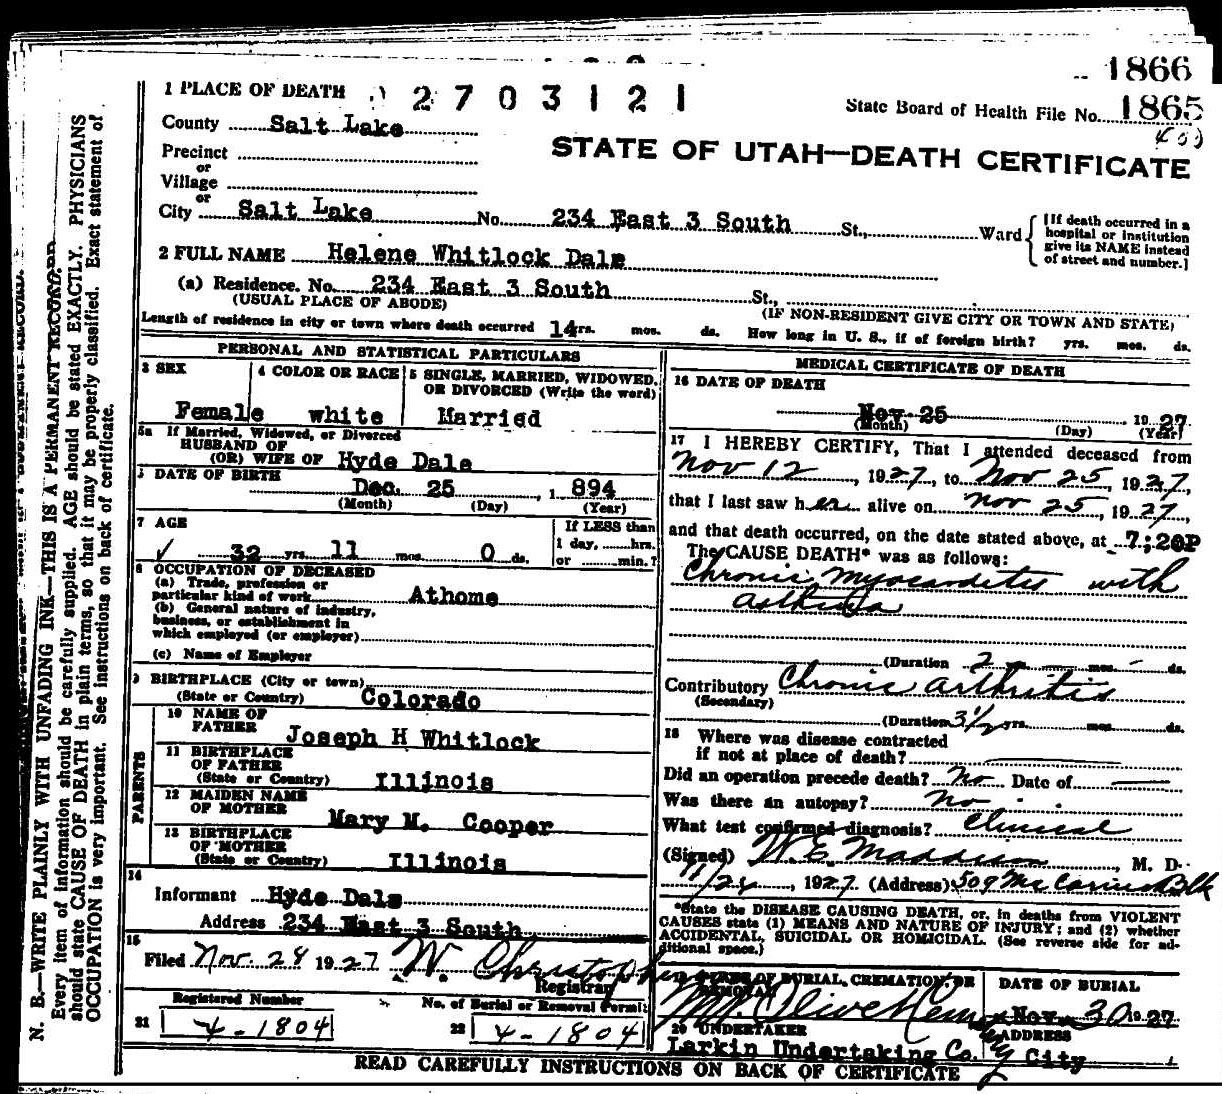 1866
1 PLACE OF DEATH 2703121
State Board of Health File No. 1865
County Salt Lake
STATE OF UTAH—DEATH CERTIFICATE
Precinct
or
Village
or
City Salt Lake No. 234 East 3 South St., Ward
[If death occurred in a
hospital or institution
give its NAME instead
of street and number.]
2 FULL NAME Helene Whitlock Dale
(a) Residence. No. 234 East 3 South St.,
(USUAL PLACE OF ABODE) (IF NON-RESIDENT GIVE CITY OR TOWN AND STATE)
Length of residence in city or town where death occurred 14 yrs. mos. ds. How long in U. S., if of foreign birth? yrs. mos. ds.
PERSONAL AND STATISTICAL PARTICULARS
3 SEX 4 COLOR OR RACE 5 SINGLE, MARRIED, WIDOWED,
OR DIVORCED (Write the word)
Female white Married
5a If Married, Widowed, or Divorced
HUSBAND OF
(OR) WIFE OF Hyde Dale
DATE OF BIRTH
Dec. 25, 1894
(Month) (Day) (Year)
7 AGE If LESS than
1 day, hrs.
✓ 32 yrs. 11 mos. 0 ds. or min.?
8 OCCUPATION OF DECEASED
(a) Trade, profession or
particular kind of work Athome
(b) General nature of industry,
business, or establishment in
which employed (or employer)
(c) Name of Employer
9 BIRTHPLACE (City or town)
(State or Country) Colorado
PARENTS
10 NAME OF
FATHER Joseph H Whitlock
11 BIRTHPLACE
OF FATHER
(State or Country) Illinois
12 MAIDEN NAME
OF MOTHER Mary M. Cooper
13 BIRTHPLACE
OF MOTHER
(State or Country) Illinois
14
Informant Hyde Dale
Address 234 East 3 South
15
Filed Nov. 28 1927 W. Christopherson
Registrar
Registered Number No. of Burial or Removal Permit
21 4-1804 22 4-1804
MEDICAL CERTIFICATE OF DEATH
16 DATE OF DEATH
Nov 25 1927
(Month) (Day) (Year)
17 I HEREBY CERTIFY, That I attended deceased from
Nov 12, 1927, to Nov 25, 1927,
that I last saw her alive on Nov 25, 1927,
and that death occurred, on the date stated above, at 7;20P
The CAUSE DEATH* was as follows:
Chronic myocarditis with
asthma
(Duration 2 mos. - ds.
Contributory Chronic arthritis
(Secondary)
(Duration 3½ yrs. mos. ds.
18 Where was disease contracted
if not at place of death?
Did an operation precede death? No Date of
Was there an autopsy? no
What test confirmed diagnosis? Clinical
(Signed) W. E. Maddison, M. D.
11/26, 1927 (Address) 509 McCornick Blk
*State the DISEASE CAUSING DEATH, or, in deaths from VIOLENT
CAUSES state (1) MEANS AND NATURE OF INJURY; and (2) whether
ACCIDENTAL, SUICIDAL OR HOMICIDAL. (See reverse side for ad-
ditional space.)
OF BURIAL, CREMATION, OR DATE OF BURIAL
Mt. Olivet Cemetery Nov 30 1927
20 UNDERTAKER ADDRESS
Larkin Undertaking Co. City
READ CAREFULLY INSTRUCTIONS ON BACK OF CERTIFICATE
N. B.—WRITE PLAINLY WITH UNFADING INK—THIS IS A PERMANENT RECORD.
Every item of information should be carefully supplied. AGE should be stated EXACTLY. PHYSICIANS
should state CAUSE OF DEATH in plain terms, so that it may be properly classified. Exact statement of
OCCUPATION is very important. See instructions on back of certificate.